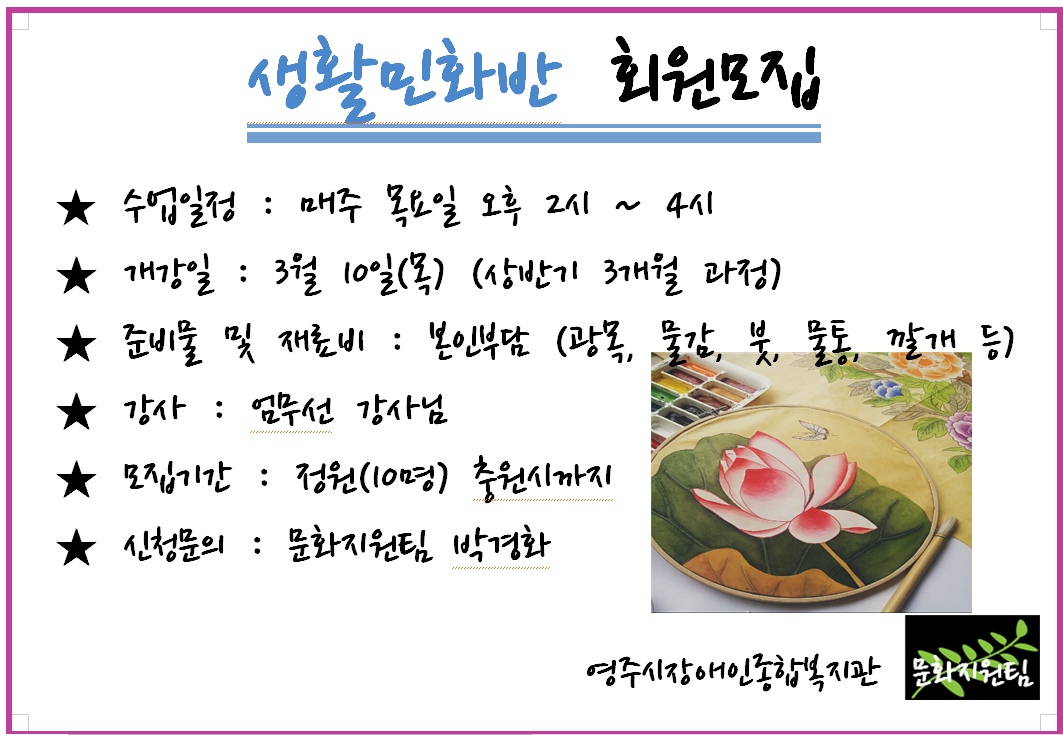 생활민화반 회원모집
★ 수업일정 : 매주 목요일 오후 2시 ~ 4시
★ 개강일 : 3월 10일(목) (상반기 3개월 과정)
★ 준비물 및 재료비 : 본인부담 (광목, 물감, 붓, 물통, 깔개 등)
★ 강사 : 엄무선 강사님
★ 모집기간 : 정원(10명) 충원시까지
★ 신청문의 : 문화지원팀 박경화
영주시장애인종합복지관
문화지원팀